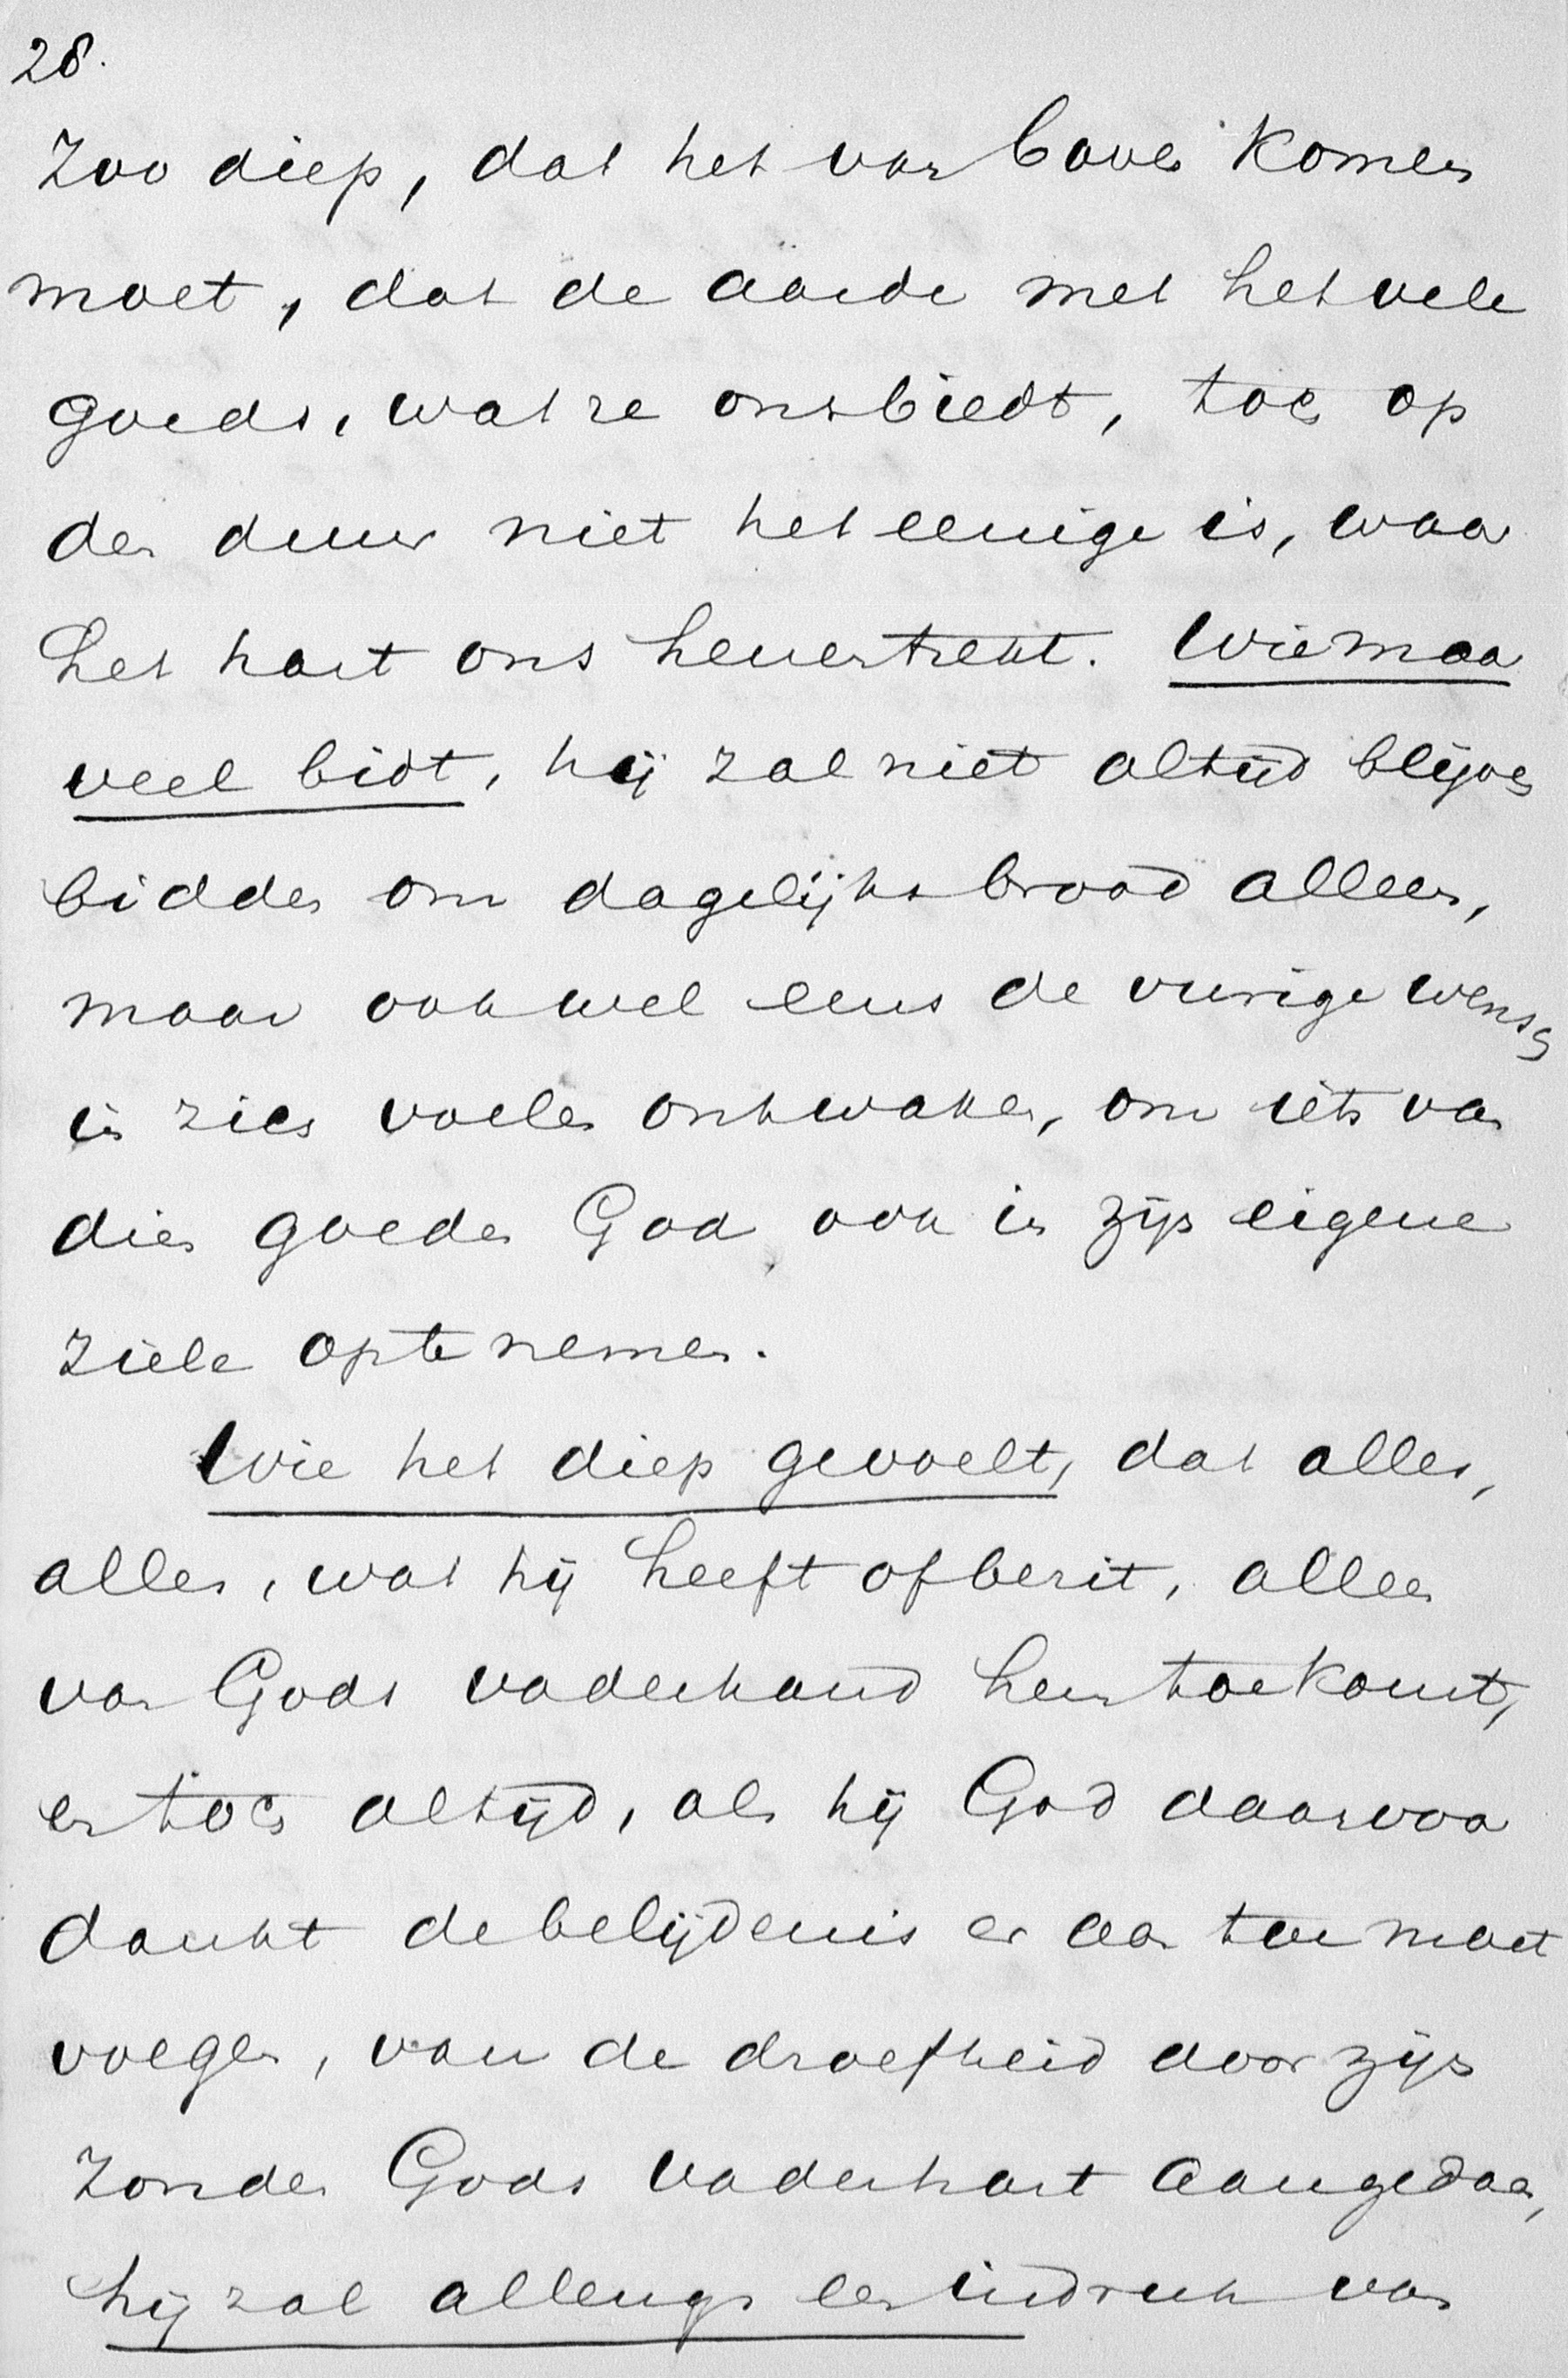 28.
Zoo diep, dat het van boven komen
moet, dat de aarde met het vele
goeds, wat ze ons biedt, toch op
den duur niet het eenige is, waar
het hart ons henentrekt. Wie maar
veel bidt, hij zal niet altijd blijven
bidden om dagelijks brood alleen,
maar ook wel eens de vurige wensch
in zich voelen ontwaken, om iets van
dien goeden God ook in zijn eigene
ziele op te nemen.
Wie het diep gevoelt, dat alles,
alles, wat hij heeft of bezit, alleen
van Gods vaderhand hem toekomt,
en toch altijd, als hij God daarvoor
dankt de belijdenis er aan toe moet
voegen, van de droefheid door zijn
zonden Gods vaderhart aangedaan,
hij zal allengs een indruk van